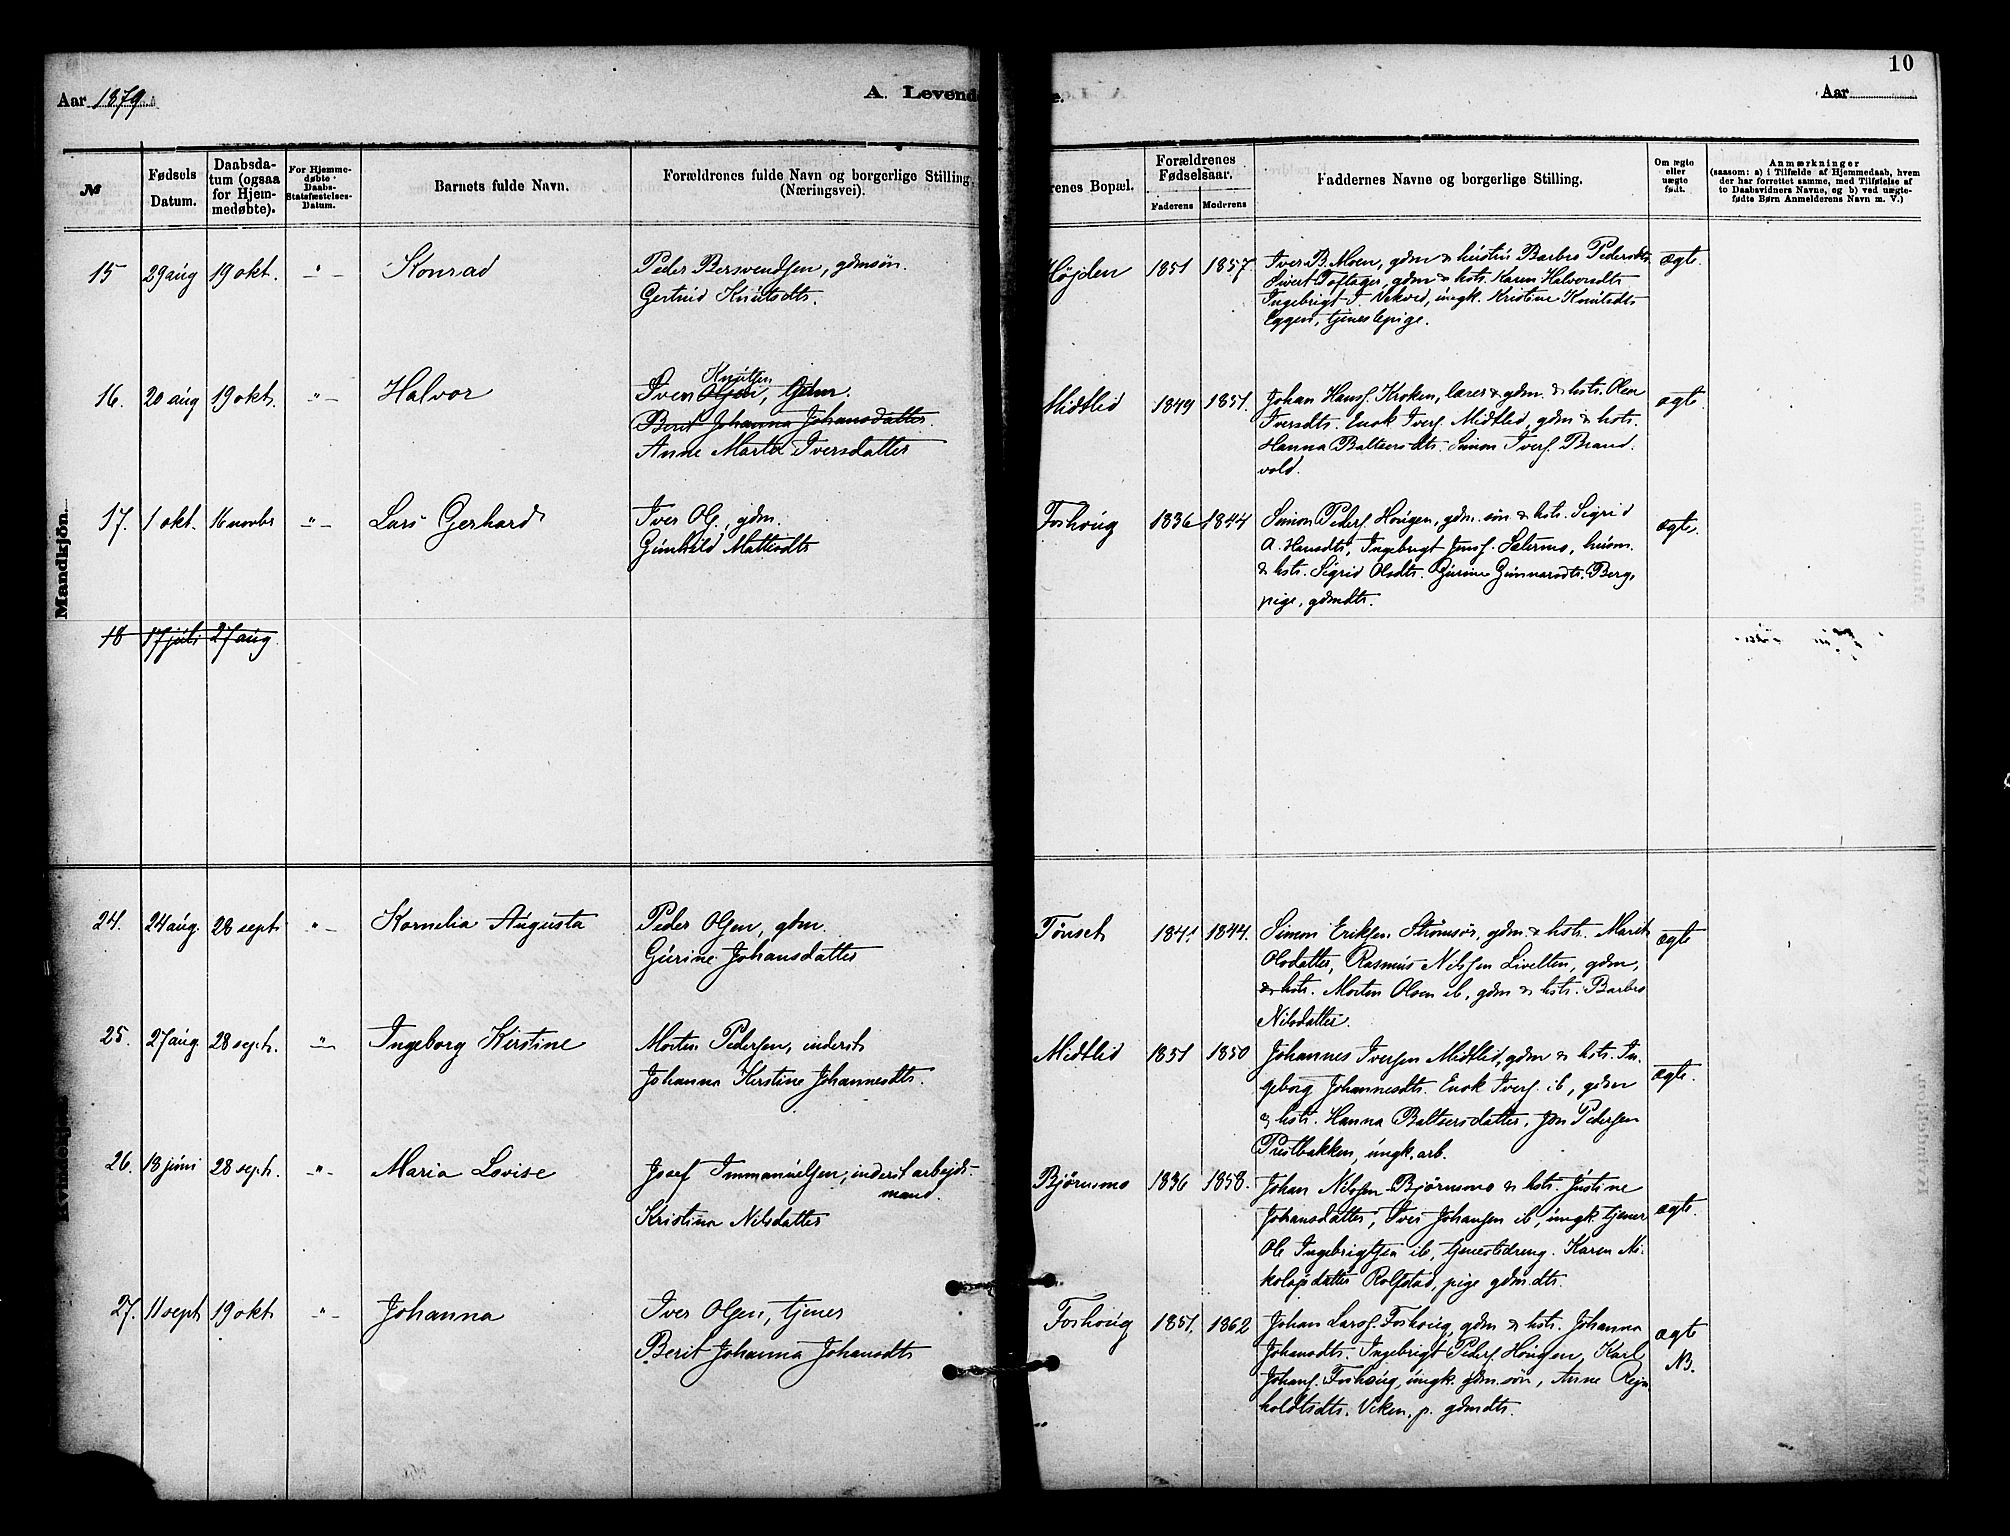 10
Aar 1879
A. Levende
e.
Aar
№
Fødsels Datum.
Daabsdatum (ogsaa for Hjemmedøbte).
For Hjemmedøbte Daabs-Statsfæstelses-Datum.
Barnets fulde Navn.
Forældrenes fulde Navn og borgerlige Stilling (Næringsvei).
renes Bopæl.
Forældrenes Fødselsaar.
Faderens
Moderens
Faddernes Navne og borgerlige Stilling.
Om ægte eller uægte født.
Anmærkninger
(saasom: a) i Tilfælde af Hjemmedaab, hvem
der har forrettet samme, med Tilføielse af
to Daabsvidners Navne, og b) ved uægte-
fødte Børn Anmelderens Navn m. V.)
Mandkjön.
15 29 aug 19 okt. -"- Konrad
Peder Bersvendsen, gdmsøn.
Gertrud Knutsdts.
Højden 1851 1857.
Iver B. Moen, gdm & hustru Barbro Pedersdts.
Sivert Toftager, gdm & hstr. Karen Halvorsdts
Ingebrigt I. Vekved, ungk. Kristine Knutsdts
Eggen, tjenestepige.
ægte.
16. 20 aug 19 okt. -"- Halvor
Knutsen
Iven Olsen, Gdm.
Berit Johanna Johansdatter.
Anne Marta Iversdatter
Midtlid 1849 1851.
Johan Hansf. Kroken, lærer & gdm & hstr. Olea
Iversdts. Enok Iverf. Midtlid, gdm & hstr.
Hanna Baltsersdts. Simon Iverf. Brand-
vold.
ægte.
17. 1 okt. 16 novbr -"- Lars Gerhard
Iver Olf., gdm.
Gunhild Matteodts
Foshoug 1836 1844
Simon Pedersf. Hougen, gdm. søn & hstr. Sigrid
A. Hansdts, Ingebrigt Jonsf. Sælermo, husm.
& hstr. Sigrid Olsdts. Gurine Gunnarsdts. Berg,
pige, gdmdts.
ægte.
18 17 juli 27 aug.
24. 24 aug. 28 sept. -"- Kornelia Augusta
Peder Olsen, gdm.
Gurine Johansdatter
Tønset 1841. 1844.
Simon Eriksen Strømsør, gdm & hstr. Marit
Olsdatter, Rasmus Nilssen Livelten, gdm,
& hstr. Morten Olsen ib, gdm & hstr. Barbro
Nilsdatter.
ægte
25. 27 aug. 28 sept. -"- Ingeborg Kirstine
Morten Pedersen, inderst
Johanna Kirstine Johannesdts.
Midtlid 1851 1850
Johannes Iversen Midtlid, gdm & hstr. In-
geborg Johannesdts. Enok Iverf. ib, gdm
& hstr. Hanna Baltsersdatter, Jon Pedersen
Prestbakken, ungk. arb.
ægte.
26. 18 juni 28 sept. -"- Maria Lovise
Josef Immanuelsen, inderst arbejds-
mand.
Kristina Nilsdatter
Bjørnsmo 1836 1858.
Johan Nilssen Bjørnsmo & hstr. Justine
Johansdatter, Iver Johansen ib, ungk. tjener
Ole Ingebrigtsen ib, tjenestedreng. Karen Ni-
kolajsdatter Rolfstad, pige gdm.dts.
ægte.
27. 11 sept 19 okt -"- Johanna
Iver Olsen, tjener
Berit Johanna Johansdts
Foshoug 1851. 1862
Johan Larsf. Foshoug, gdm & hstr. Johanna
Johansdts. Ingebrigt Pedersf. Hougen, Karl
Johansf. Foshoug, ungk. gdm.søn, Anne Rejn
holdtsdts. Viken, p. gdmdts.
ægte
NB.